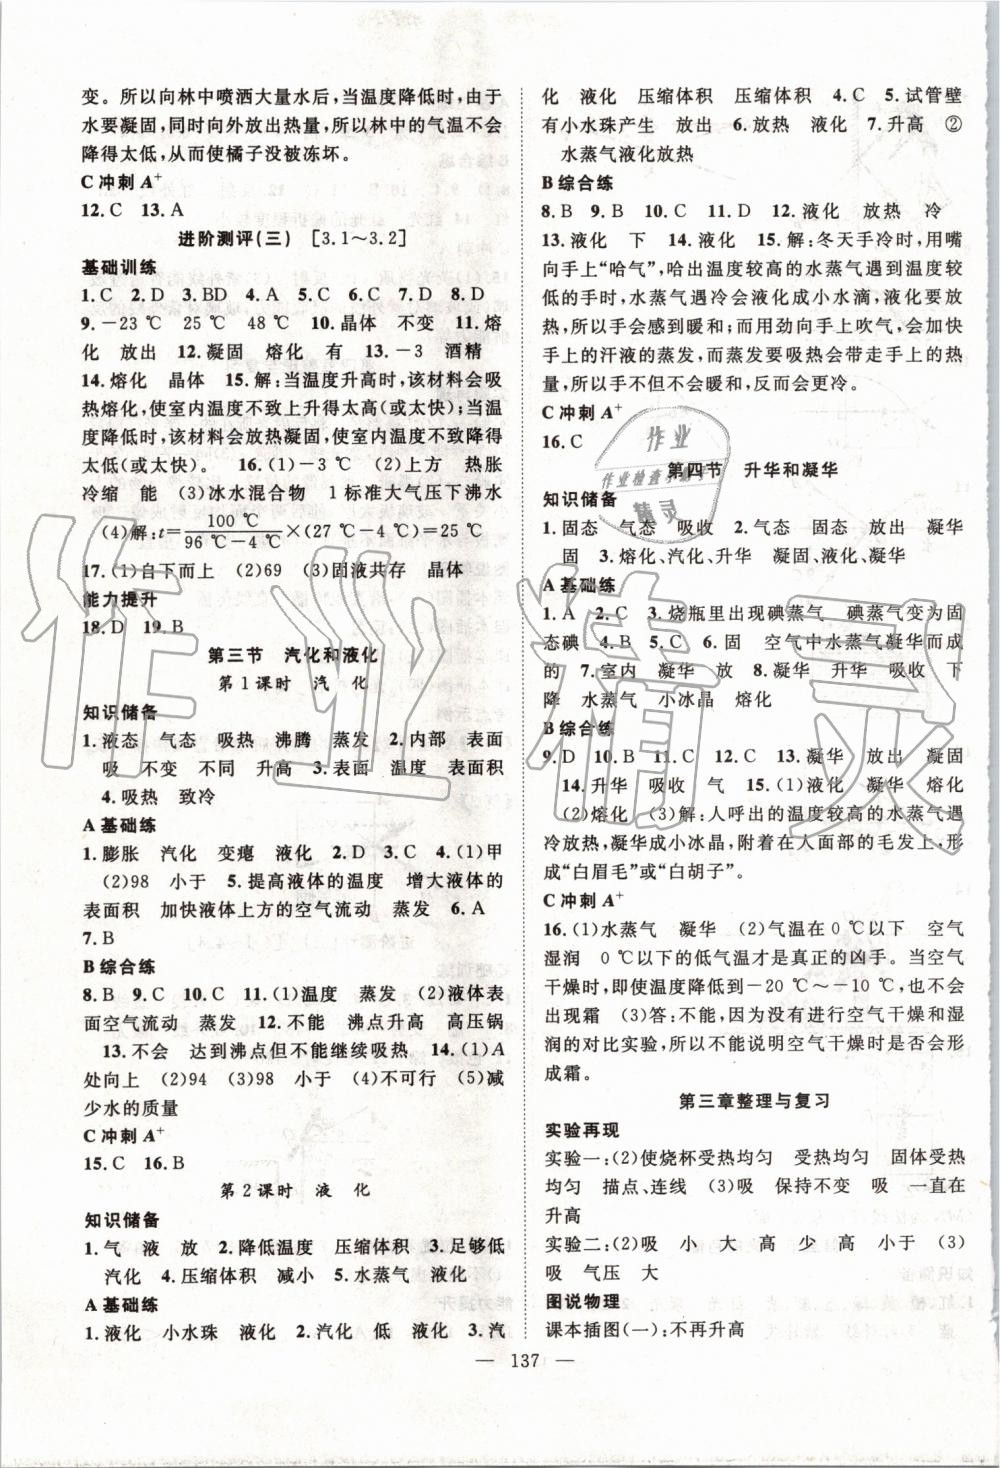 变。所以向林中喷洒大量水后，当温度降低时，由于
水要凝固，同时向外放出热量，所以林中的气温不会
降得太低，从而使橘子没被冻坏。
C 冲刺 A⁺
12. C  13. A
进阶测评(三)  [3.1～3.2]
基础训练
1. C  2. D  3. BD  4. A  5. C  6. C  7. D  8. D
9. －23 ℃  25 ℃  48 ℃  10. 晶体  不变  11. 熔
化  放出  12. 凝固  熔化  有  13. －3  酒精
14. 熔化  晶体  15. 解：当温度升高时，该材料会吸
热熔化，使室内温度不致上升得太高(或太快)；当温
度降低时，该材料会放热凝固，使室内温度不致降得
太低(或太快)。  16. (1)－3 ℃  (2)上方  热胀
冷缩  能  (3)冰水混合物  1 标准大气压下沸水
(4)解：t＝100 ℃/(96 ℃－4 ℃)×(27 ℃－4 ℃)＝25 ℃
17. (1)自下而上  (2)69  (3)固液共存  晶体
能力提升
18. D  19. B
第三节  汽化和液化
第 1 课时  汽  化
知识储备
1. 液态  气态  吸热  沸腾  蒸发  2. 内部  表面
吸  不变  不同  升高  3. 表面  温度  表面积
4. 吸热  致冷
A 基础练
1. 膨胀  汽化  变瘪  液化  2. D  3. C  4. (1)甲
(2)98  小于  5. 提高液体的温度  增大液体的
表面积  加快液体上方的空气流动  蒸发  6. A
7. B
B 综合练
8. B  9. C  10. C  11. (1)温度  蒸发  (2)液体表
面空气流动  蒸发  12. 不能  沸点升高  高压锅
13. 不会  达到沸点但不能继续吸热  14. (1)A
处向上  (2)94  (3)98  小于  (4)不可行  (5)减
少水的质量
C 冲刺 A⁺
15. C  16. B
第 2 课时  液  化
知识储备
1. 气  液  放  2. 降低温度  压缩体积  3. 足够低
汽化  4. 压缩体积  减小  5. 水蒸气  液化
A 基础练
1. 液化  小水珠  液化  2. 汽化  低  液化  3. 汽
化  液化  压缩体积  压缩体积  4. C  5. 试管壁
有小水珠产生  放出  6. 放热  液化  7. 升高  ②
水蒸气液化放热
B 综合练
8. B  9. B  10. C  11. D  12. 液化  放热  冷
13. 液化  下  14. 液化  15. 解：冬天手冷时，用嘴
向手上“哈气”，哈出温度较高的水蒸气遇到温度较
低的手时，水蒸气遇冷会液化成小水滴，液化要放
热，所以手会感到暖和；而用劲向手上吹气，会加快
手上的汗液的蒸发，而蒸发要吸热会带走手上的热
量，所以手不但不会暖和，反而会更冷。
C 冲刺 A⁺
16. C
第四节  升华和凝华
知识储备
1. 固态  气态  吸收  2. 气态  固态  放出  凝华
固  3. 熔化、汽化、升华  凝固、液化、凝华
A 基础练
1. A  2. C  3. 烧瓶里出现碘蒸气  碘蒸气变为固
态碘  4. B  5. C  6. 固  空气中水蒸气凝华而成
的  7. 室内  凝华  放  8. 凝华  升华  吸收  下
降  水蒸气  小冰晶  熔化
B 综合练
9. D  10. B  11. C  12. C  13. 凝华  放出  凝固
14. 升华  吸收  气  15. (1)液化  凝华  熔化
(2)熔化  (3)解：人呼出的温度较高的水蒸气遇
冷放热，凝华成小冰晶，附着在人面部的毛发上，形
成“白眉毛”或“白胡子”。
C 冲刺 A⁺
16. (1)水蒸气  凝华  (2)气温在 0 ℃以下  空气
湿润  0 ℃以下的低气温才是真正的凶手。当空气
干燥时，即使温度降低到－20 ℃～－10 ℃，也不会
出现霜  (3)答：不能，因为没有进行空气干燥和湿
润的对比实验，所以不能说明空气干燥时是否会形
成霜。
第三章整理与复习
实验再现
实验一：(2)使烧杯受热均匀  受热均匀  固体受热
均匀  描点、连线  (3)吸  保持不变  吸  一直在
升高
实验二：(2)吸  小  大  高  少  高  小于  (3)
吸  气压  大
图说物理
课本插图(一)：不再升高
— 137 —
作业
作业检查小助手
精灵
作业精灵